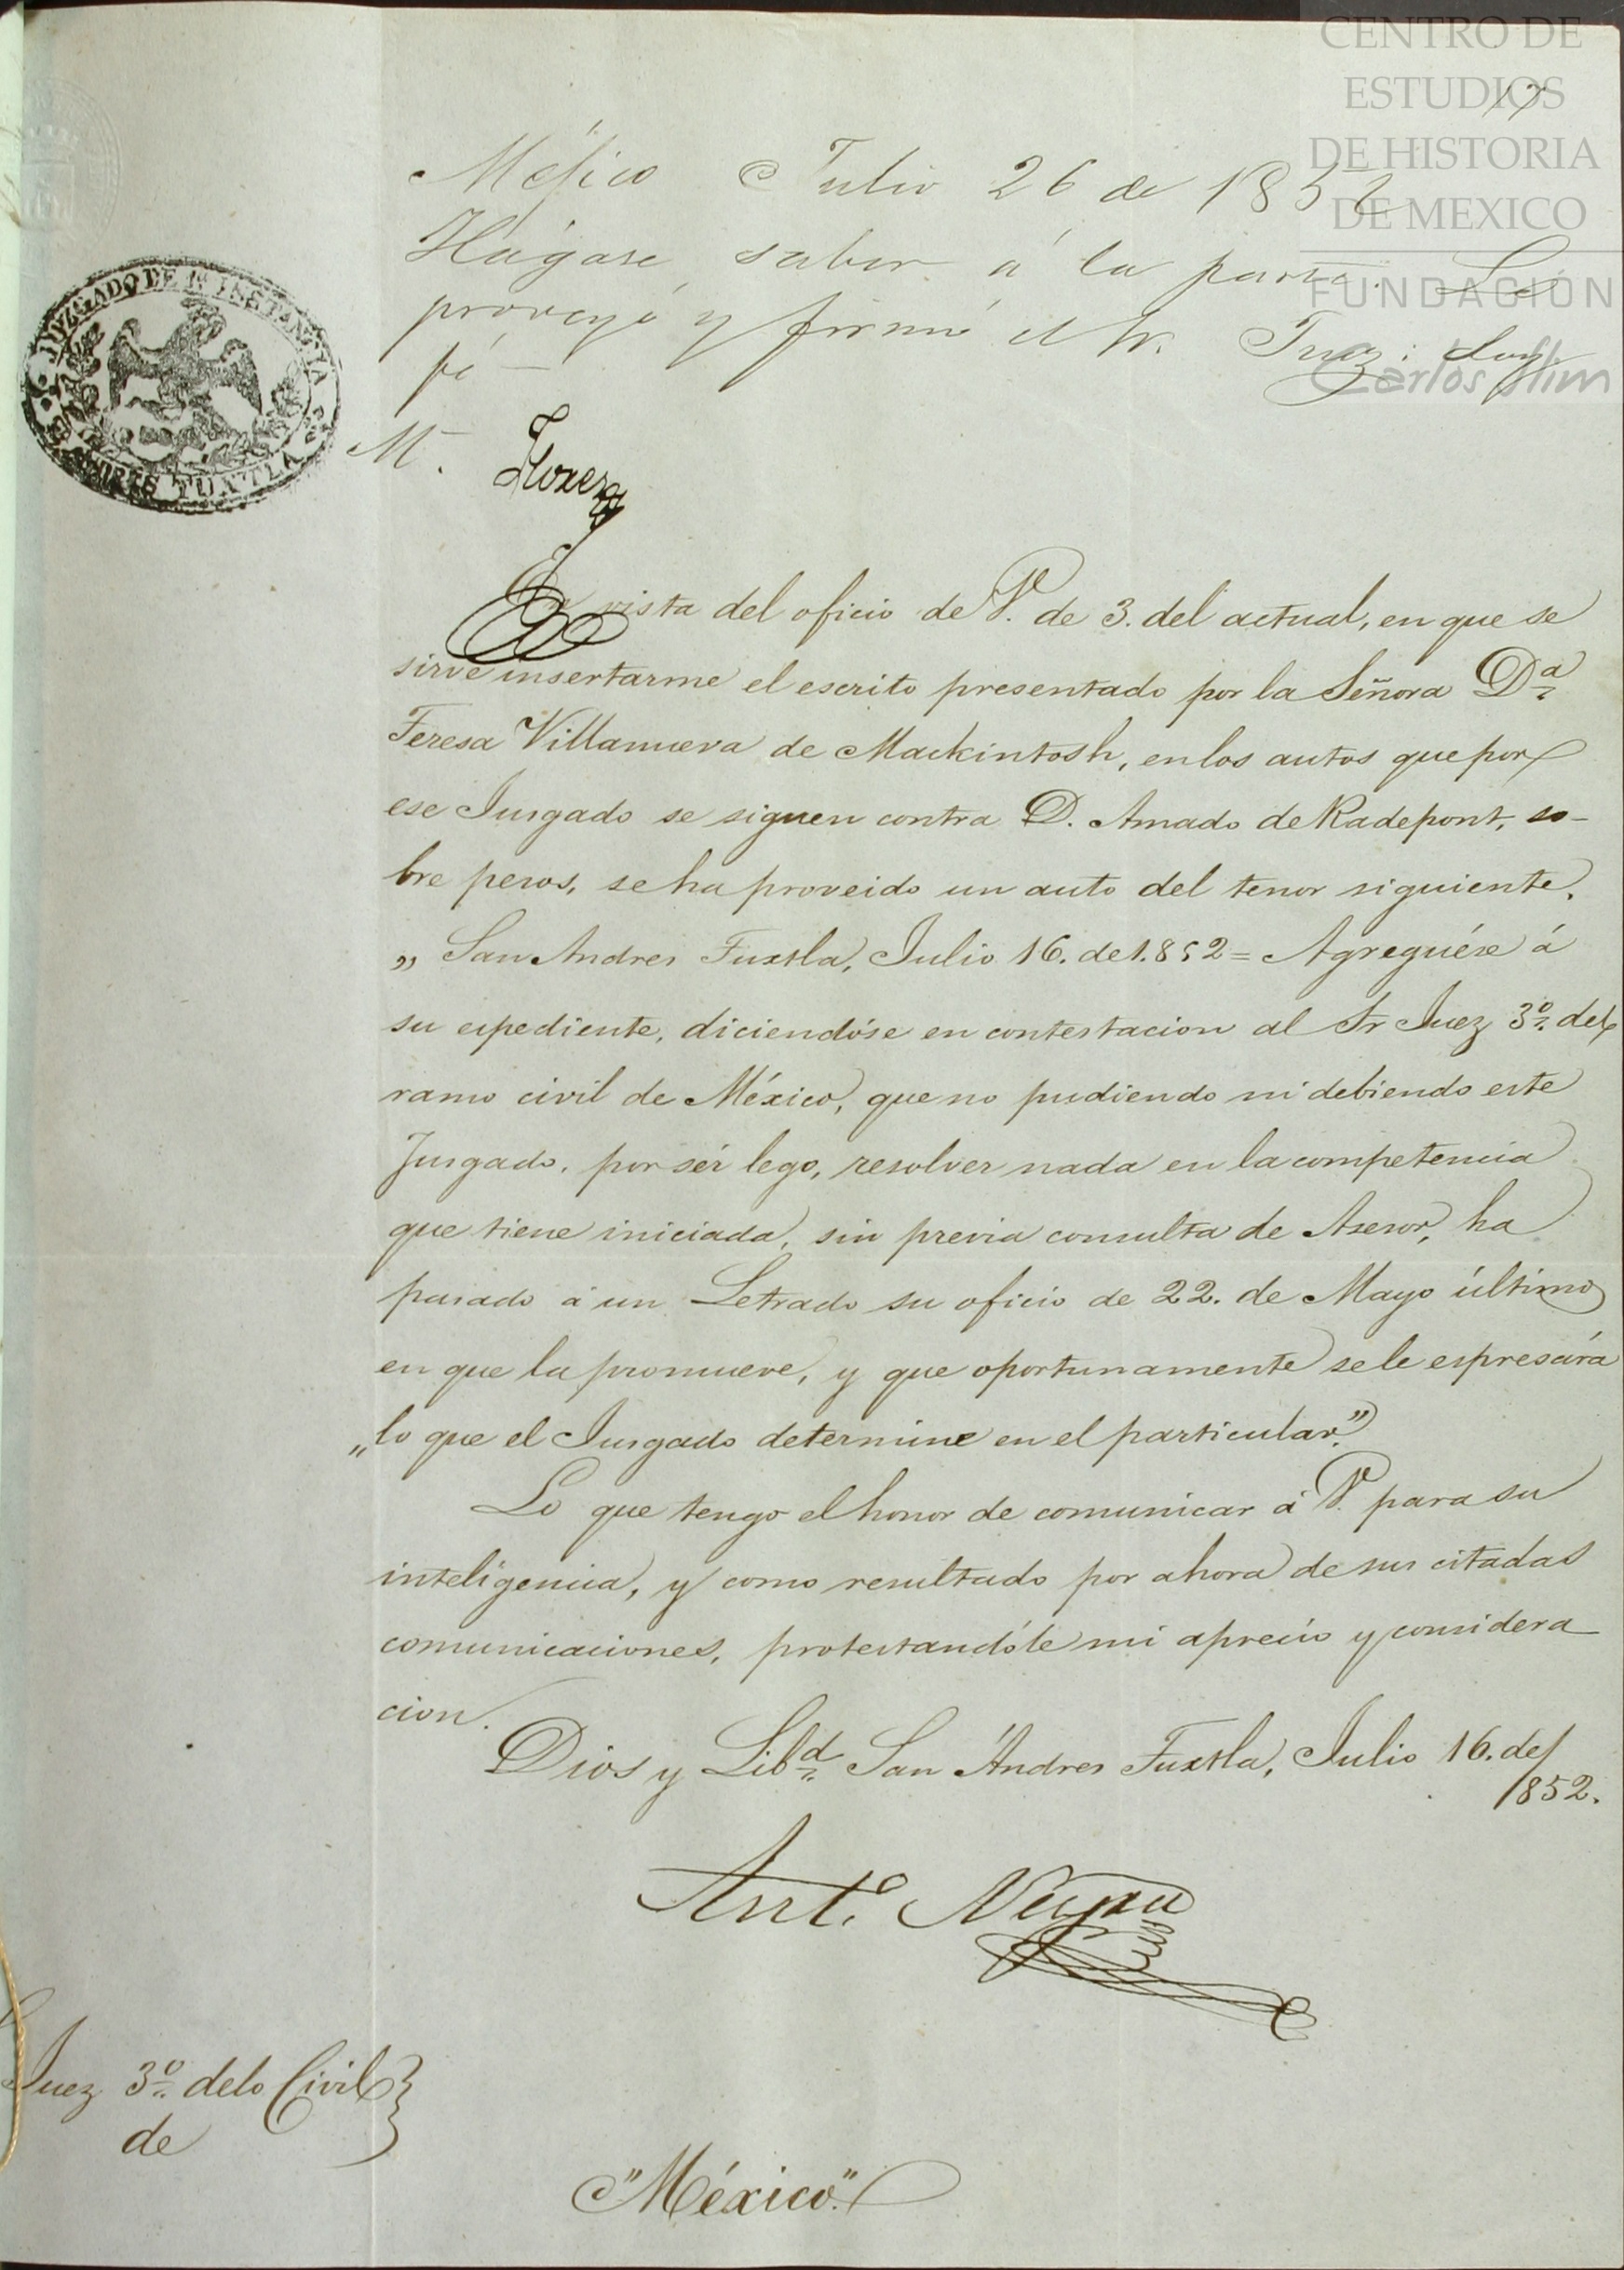 CENTRO DE
ESTUDIOS
DE HISTORIA
DE MEXICO
FUNDACIÓN
Carlos Slim
17
Méjico Julio 26 de 1852
Hágase saber á la parte. Lo
proveyó y firmó el Sr. Juez: doy
fé —
JUZGADO DE 1ª INSTANCIA
ANDRES TUXTLA
M.
En vista del oficio de V. de 3. del actual, en que se
sirve insertarme el escrito presentado por la Señora Dª
Teresa Villanueva de Mackintosh, en los autos que por
ese Jusgado se siguen contra D. Amado de Radepont, so-
bre pesos, se ha proveido un auto del tenor siguiente.
„ San Andres Tuxtla, Julio 16. de 1.852 = Agreguése á
su espediente, diciendóse en contestacion al Sr Juez 3º del
ramo civil de México, que no pudiendo ni debiendo este
Jusgado, por sér lego, resolver nada en la competencia
que tiene iniciada, sin previa consulta de Asesor, ha
pasado á un Letrado su oficio de 22. de Mayo último
en que la promueve, y que oportunamente se le espresára
„lo que el Jusgado determine en el particular."
Lo que tengo el honor de comunicar á V. para su
inteligencia, y como resultado por ahora de sus citadas
comunicaciones, protestandóle mi aprecio y considera
cion.
Dios y Libd. San Andres Tuxtla, Julio 16. de
1852.
Anto.
Juez 3º de lo Civil
de
"México."